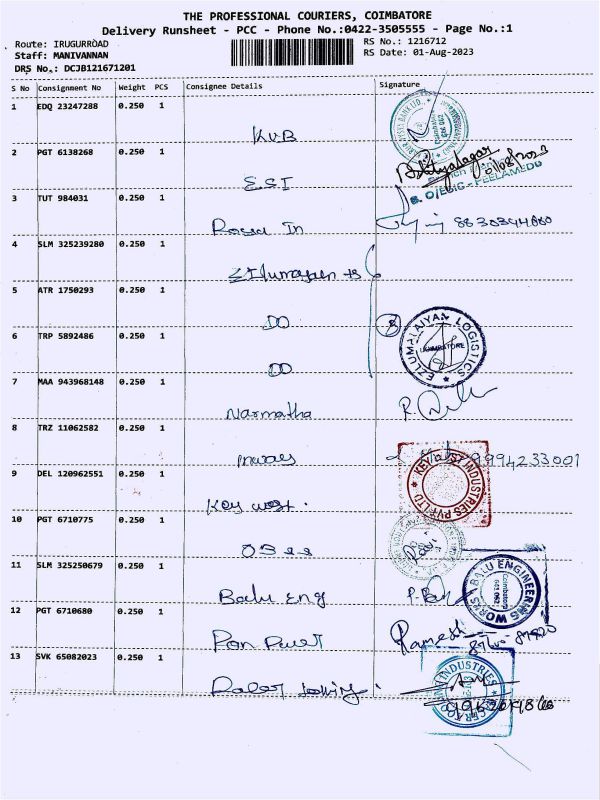 THE PROFESSIONAL COURIERS, COIMBATORE
Delivery Runsheet - PCC - Phone No.:0422-3505555 - Page No.:1
Route: IRUGURROAD
RS No.: 1216712
Staff: MANIVANNAN
RS Date: 01-Aug-2023
DRS No.: DCJB121671201
S No Consignment No Weight PCS Consignee Details Signature
1 EDQ 23247288 0.250 1
KVB
2 PGT 6138268 0.250 1
ESI
3 TUT 984031 0.250 1
8830394880
4 SLM 325239280 0.250 1
5 ATR 1750293 0.250 1
DO
6 TRP 5892486 0.250 1
EZLUMALAIYAN LOGISTICS
COIMBATORE
DO
7 MAA 943968148 0.250 1
Narmatha
8 TRZ 11062582 0.250 1
9994233001
9 DEL 120962551 0.250 1
KEY WEST INDUSTRIES PVT LTD
Key west.
10 PGT 6710775 0.250 1
Ravi
11 SLM 325250679 0.250 1
BALU ENGINEERING WORKS
Coimbatore
641 062
Balu Eng
12 PGT 6710680 0.250 1
Ramesh
13 SVK 65082023 0.250 1
INDUSTRIES